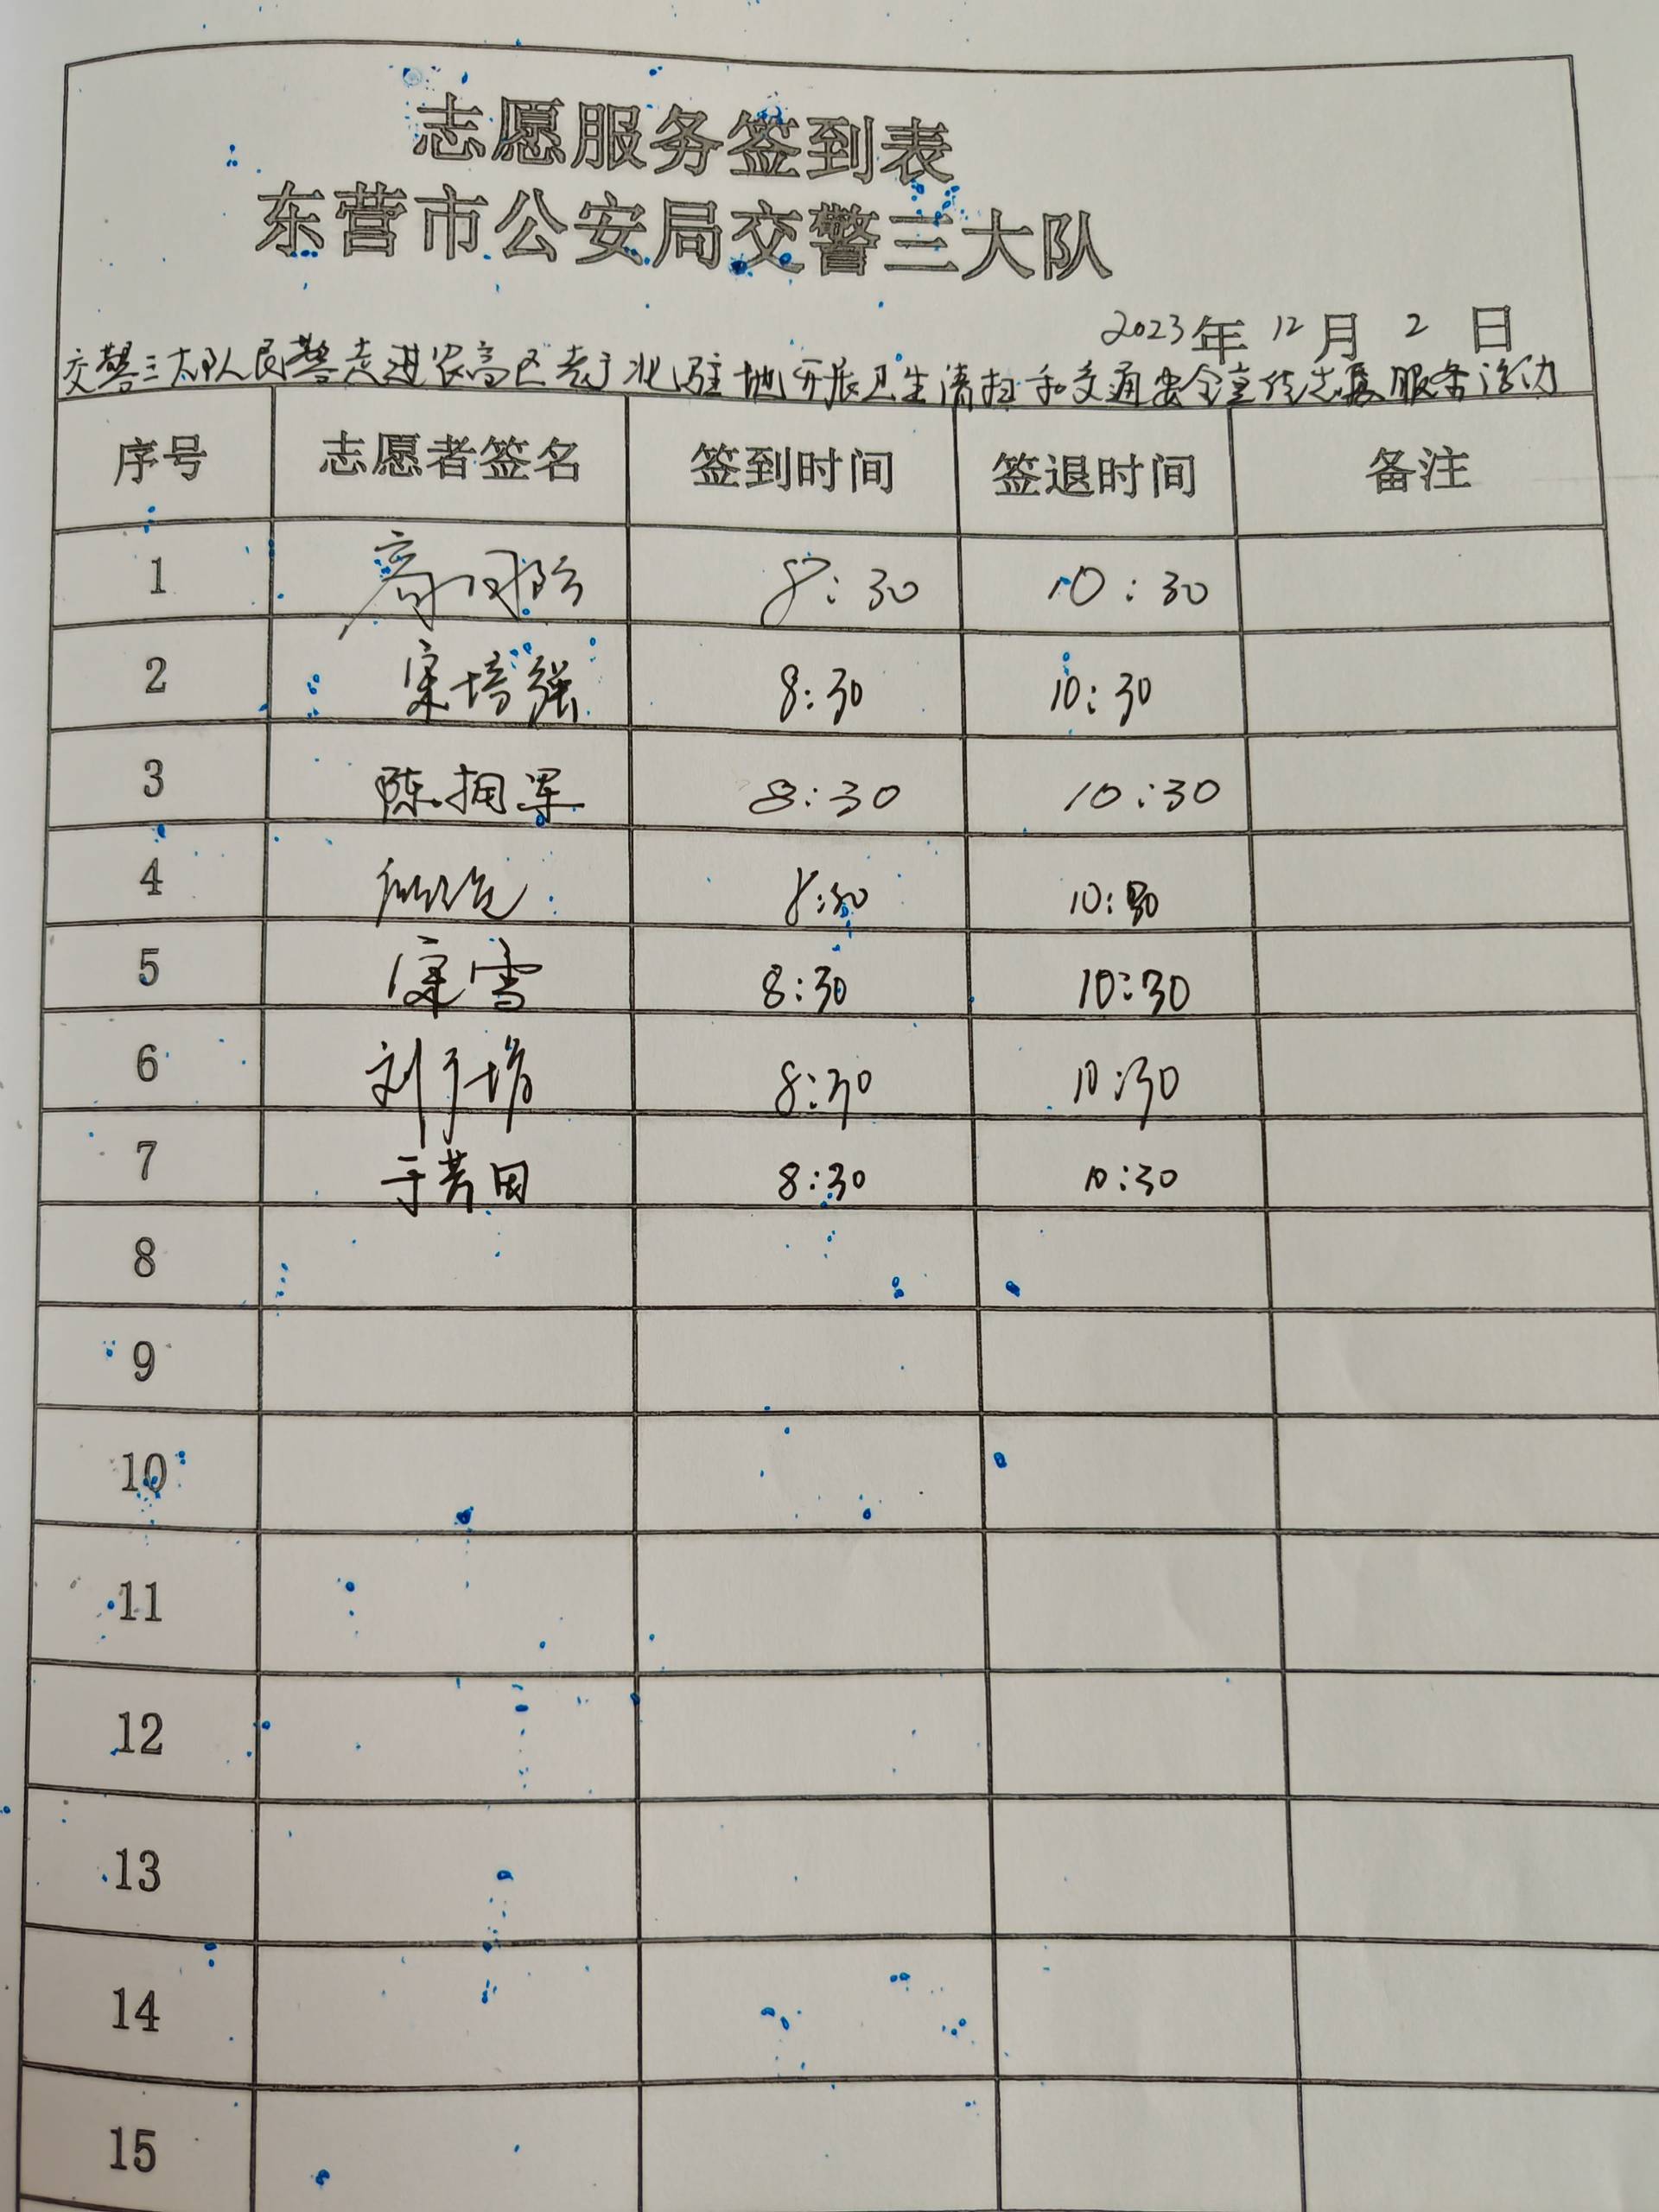 志愿服务签到表
东营市公安局交警三大队
2023年 12月 2日
交警三大队民警走进农高区 驻地开展卫生清扫和交通安全宣传志愿服务活动
序号 志愿者签名 签到时间 签退时间 备注
1 8:30 10:30
2 培强 8:30 10:30
3 陈拥军 8:30 10:30
4 8:30 10:30
5 雪 8:30 10:30
6 刘 8:30 10:30
7 于芳田 8:30 10:30
8
9
10
11
12
13
14
15